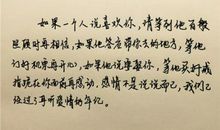 如果一个人说喜欢你，请等到他百般
照顾时再相信，如果他答应带你去的地方，等他
订好机票再开心，如果他说要娶你，等他买好戒
指跪在你面前再感动，感情不是说说而已，我们已
经过了耳听爱情的年纪。